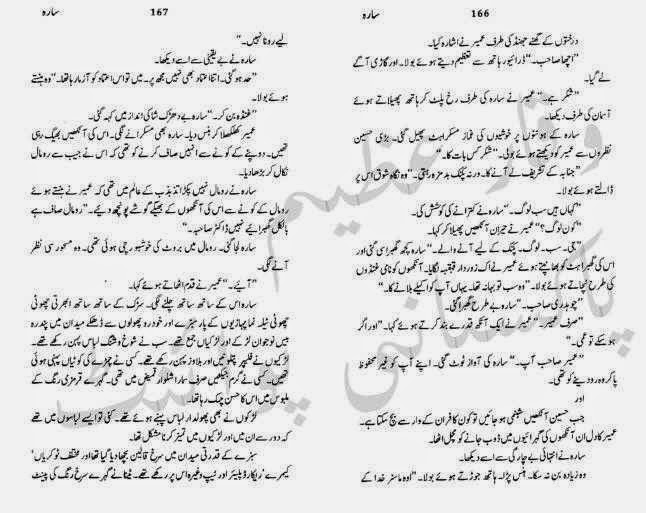 سارہ 166
درختوں کے گھنے جھنڈ کی طرف عمیر نے اشارہ کیا۔
"اچھا صاحب۔" ڈرائیور ہاتھ سے تعظیم دیتے ہوئے بولا۔ اور گاڑی آگے
لے گیا۔
"شکر ہے۔" عمیر نے سارہ کی طرف رخ پلٹ کر ہاتھ پھیلاتے ہوئے
آسمان کی طرف دیکھا۔
سارہ کے ہونٹوں پر خوشیوں کی غماز مسکراہٹ پھیل گئی۔ بڑی حسین
نظروں سے عمیر کو دیکھتے ہوئے بولی۔ "شکر کس بات کا۔"
"جنابہ کے تشریف لے آنے کا۔ ورنہ پکنک بدمزہ رہتی۔" وہ نگاہ شوق اس پر
ڈالتے ہوئے بولا۔
"کہاں ہیں سب لوگ۔" سارہ نے کترانے کی کوشش کی۔
"کون لوگ؟" عمیر نے حیران آنکھیں پھیلا کر کہا۔
"جی۔ سب۔ لوگ۔ پکنک کے لیے آنے والے۔" سارہ کچھ گھبرا سی گئی اور
اس کی گھبراہٹ کو بھانپتے ہوئے عمیر نے اک زوردار قہقہہ لگایا۔ آنکھوں کو نامی غنڈوں
کی طرح نچاتے ہوئے بولا۔ "وہ سب تو بہانہ تھا۔ یہاں آپ کو اکیلے بلانے کا۔"
"چوہدری صاحب۔" سارہ بے طرح گھبرا گئی۔
"صرف عمیر۔" عمیر نے ایک آنکھ قدرے بند کرتے ہوئے کہا۔ "اور اگر
ہو سکے تو عمی۔"
"عمیر صاحب آپ۔" سارہ کی آواز ٹوٹ گئی۔ اپنے آپ کو غیر محفوظ
پا کر وہ رو دینے کو تھی۔
اور
جب حسین آنکھیں شبنمی ہو جائیں تو کون کافر ان کے وار سے بچ سکتا ہے۔
عمیر کا دل ان آنکھوں کی گہرائیوں میں ڈوب جانے کو مچل اٹھا۔
سارہ نے انتہائی بے چارگی سے اسے دیکھا۔
وہ زیادہ بن نہ سکا۔ ہنس پڑا۔ ہاتھ جوڑتے ہوئے بولا۔ "اوہ ماسٹر خدا کے
سارہ 167
لیے رونا نہیں۔"
سارہ نے بے یقینی سے اسے دیکھا۔
"حد ہو گئی۔ اتنا اعتماد بھی نہیں مجھ پر۔ میں تو اس اعتماد کو آزما رہا تھا۔" وہ ہنستے
ہوئے بولا۔
"غنڈہ بن کر۔" سارہ بے دھڑک شاکی انداز میں کہہ گئی۔
عمیر کھلکھلا کر ہنس دیا۔ سارہ بھی مسکرانے لگی۔ اس کی آنکھیں بھیگ رہی
تھیں۔ دوپٹے کے کونے سے انہیں صاف کرنے کو تھی کہ اس نے جیب سے رومال
نکال کر بڑھا دیا۔
سارہ نے رومال نہیں پکڑا تذبذب کے عالم میں تھی کہ عمیر نے ہنستے ہوئے
رومال کے کونے سے اس کی آنکھوں کے بھیگے گوشے پونچھ دیے۔ "رومال صاف ہے
بالکل گھبرائیے نہیں ڈاکٹر صاحبہ۔"
سارہ لجا گئی۔ رومال میں بروٹ کی خوشبو رچی ہوئی تھی۔ وہ مسحور سی نظر
آنے لگی۔
"آئیے۔" عمیر نے قدم اٹھاتے ہوئے کہا۔
سارہ اس کے ساتھ ساتھ چلنے لگی۔ سڑک کے ساتھ ساتھ ابھرتی چھوٹی
چھوٹی ٹیلہ نما پہاڑیوں کے پار سبزے اور خودرو پھولوں سے ڈھکے میدان میں پندرہ
بیس نوجوان لڑکے اور لڑکیاں جمع تھے۔ سب نے شوخ و شنگ لباس پہن رکھے تھے۔
لڑکیوں نے فلیپر پتلونیں اور بلاوز پہن رکھے تھے۔ کسی نے چمڑے کی کوٹیاں پہنی ہوئی
تھیں۔ کسی نے گرم جیکٹیں صرف سمارا شلوار قمیض میں تھی۔ گہرے قرمزی رنگ کے
ملبوس میں اس کا حسن چمک رہا تھا۔
لڑکوں نے بھی پھولدار لباس پہنے ہوئے تھے۔ کئی تو ایسے لباسوں میں تھے
کہ دور سے ان میں اور لڑکیوں میں تمیز کرنا مشکل تھا۔
سبزے کے قدرتی میدان میں سرخ قالین بچھا دیا گیا تھا اور مختلف ٹوکریاں'
کیمرے' ریکارڈ پلیئر اور ٹیپ وغیرہ اس پر رکھے تھے۔ ٹینا نے گہرے سرخ رنگ کی پینٹ
وقار عظیم
پاکستانی پوائنٹ